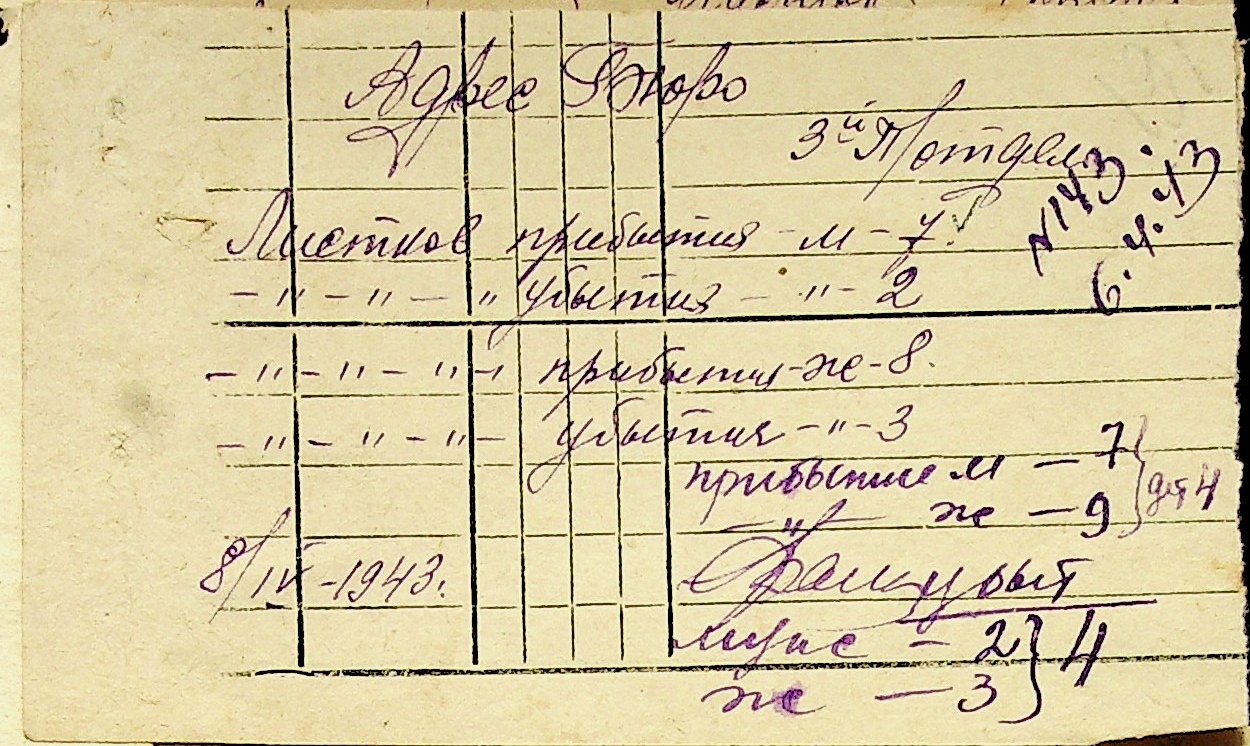 Адрес Бюро
3й П/отдел
№143.
6.4.43
Листков прибытия - м - 7.
- " - " - " убытия - " - 2
- " - " - " - прибытия - ж - 8.
- " - " - " - убытия - " - 3
прибытие м - 7 } дет 4
- " - ж - 9
8/IV - 1943. убыт
муж - 2 } 4
ж - 3